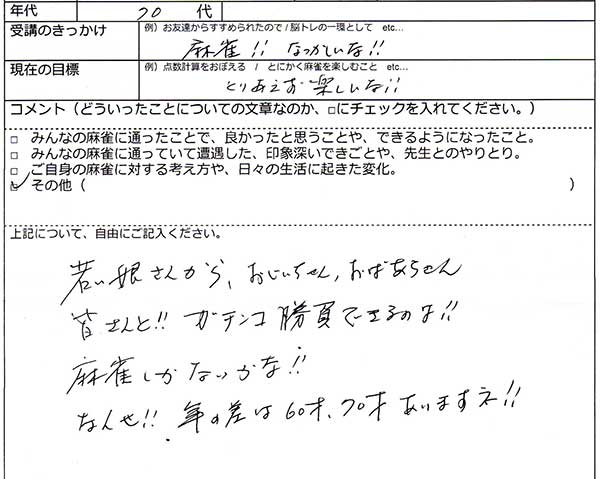 年代 70 代
受講のきっかけ 例）お友達からすすめられたので / 脳トレの一環として etc...
麻雀!! なつかしいな!!
現在の目標 例）点数計算をおぼえる / とにかく麻雀を楽しむこと etc...
とりあえず楽しいな!!
コメント（どういったことについての文章なのか、□にチェックを入れてください。）
□ みんなの麻雀に通ったことで、良かったと思うことや、できるようになったこと。
□ みんなの麻雀に通っていて遭遇した、印象深いできごとや、先生とのやりとり。
□ ご自身の麻雀に対する考え方や、日々の生活に起きた変化。
☑ その他（ ）
上記について、自由にご記入ください。
若い娘さんから、おじいちゃん、おばあちゃん
皆さんと!! ガチンコ勝負できるのは!!
麻雀しかないかな!!
なんせ!! 年の差は60才、70才ありますネ!!